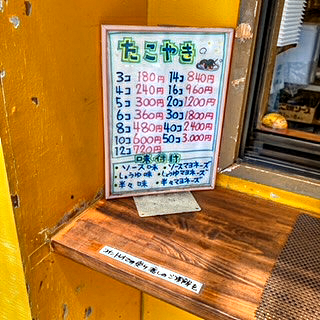 たこやき
3コ 180円 14コ 840円
4コ 240円 16コ 960円
5コ 300円 20コ 1200円
6コ 360円 30コ 1800円
8コ 480円 40コ 2400円
10コ 600円 50コ 3.000円
12コ 720円
味付け
・ソース味 ・ソースマヨネーズ
・しょうゆ味 ・しょうゆマヨネーズ
・半々味 ・半々マヨネーズ